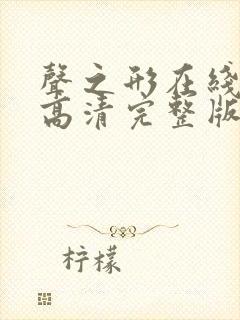 聲之形在綫
高清完整版
柠檬